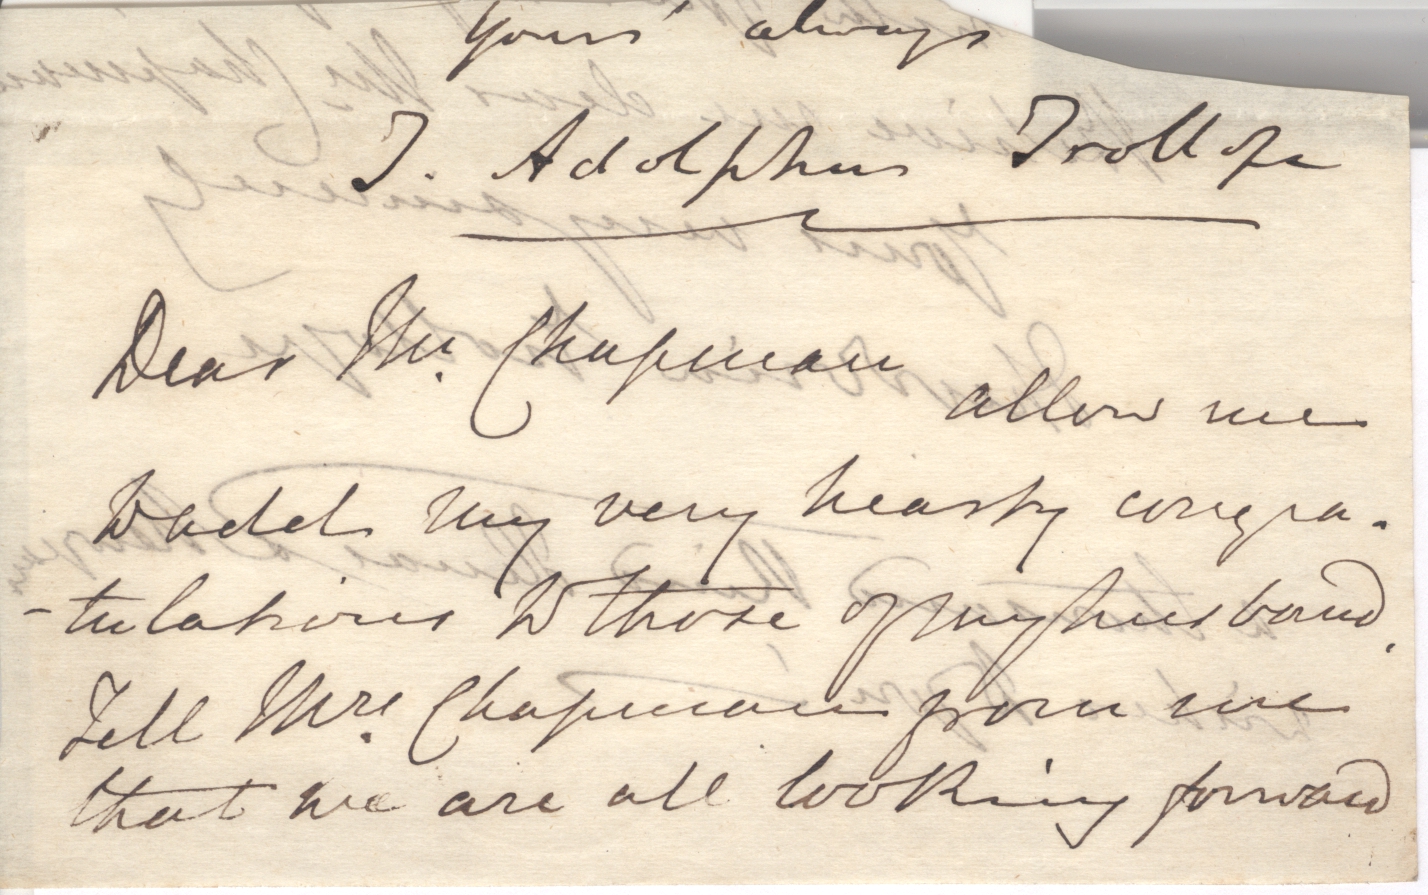 Yours always
T. Adolphus Trollope
Dear Mr. Chapman allow me
to add my very hearty congra-
-tulations to those of my husband.
Tell Mrs. Chapman from me
that we are all looking forward